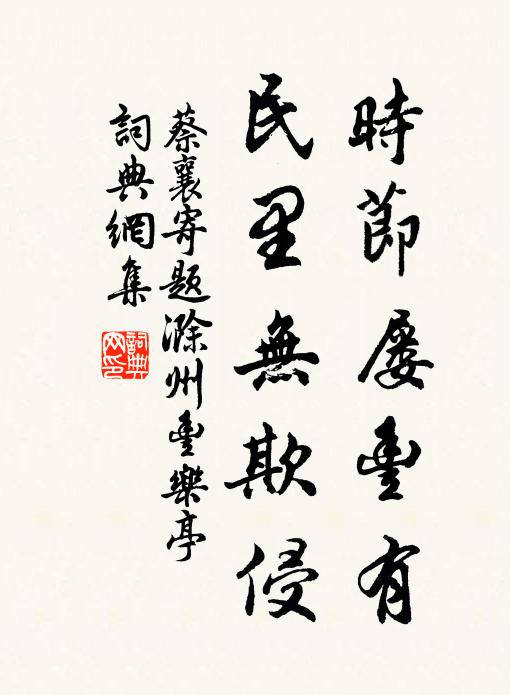 時節屡豊有
民里無欺侵
蔡襄寄題滁州豊樂亭
詞典網集
詞典网印